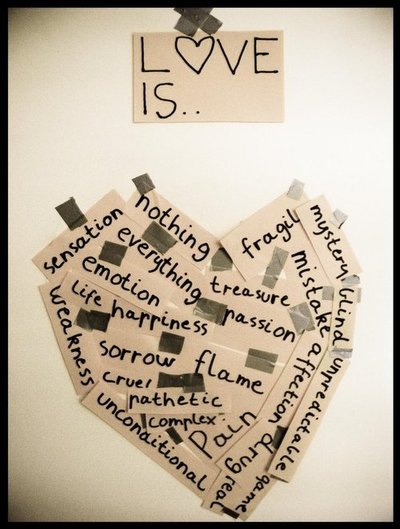 L♡VE
IS..
sensation
nothing
everything
emotion
life
happiness
weakness
sorrow
cruel
pathetic
complex
unconditional
fragil
treasure
passion
flame
pain
mystery
mistake
blind
affection
unpredictable
drug
real
game